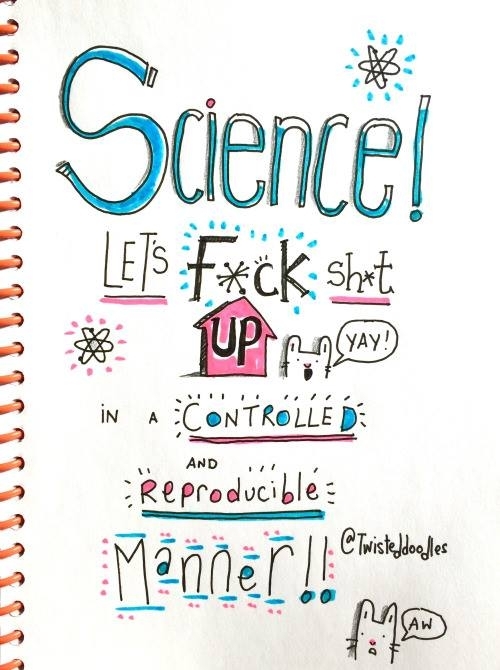 Science!
LET'S F*ck sh*t
UP
YAY!
iN A CONTROLLED
AND
Reproducible
Manner!!
@Twisteddoodles
AW